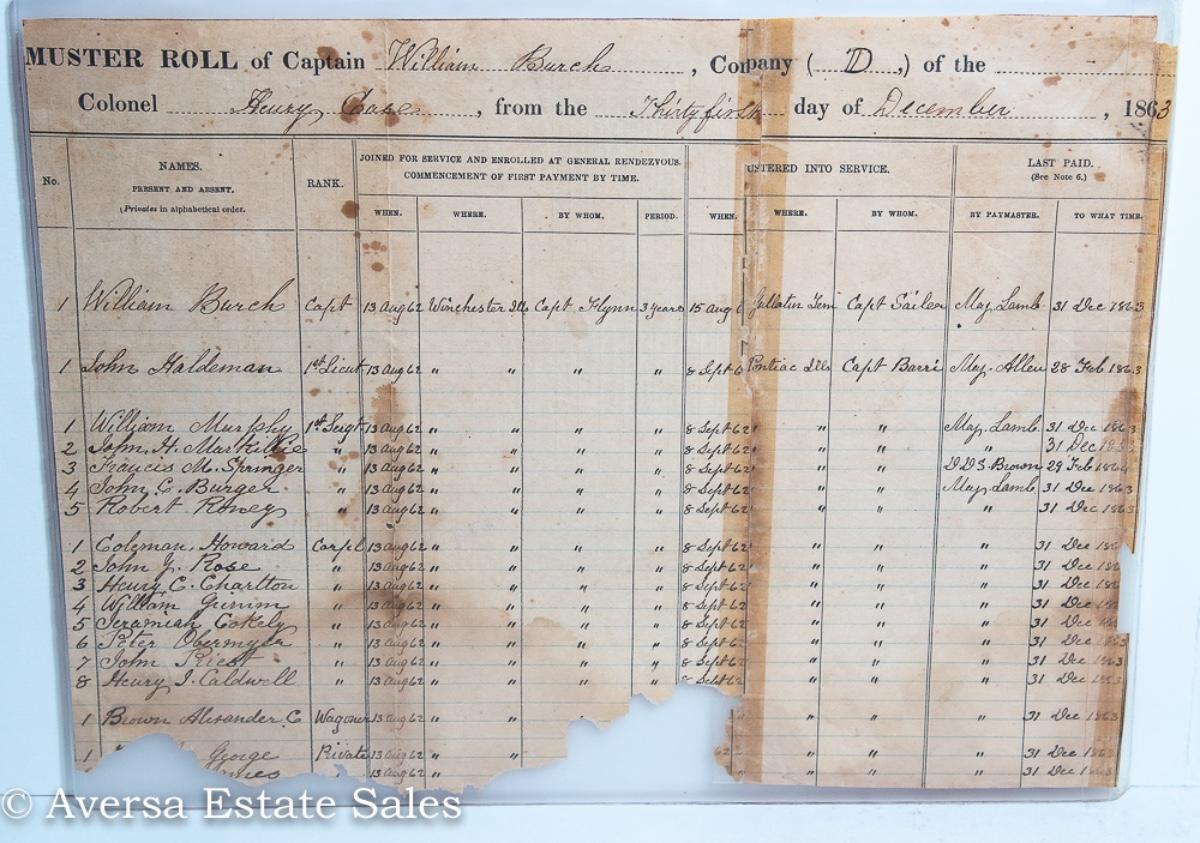 MUSTER ROLL of Captain William Burch, Company (D,) of the
Colonel Henry Case, from the Thirty first day of December, 1863
No. NAMES. RANK. JOINED FOR SERVICE AND ENROLLED AT GENERAL RENDEZVOUS. USTERED INTO SERVICE. LAST PAID.
PRESENT AND ABSENT. COMMENCEMENT OF FIRST PAYMENT BY TIME. (See Note 6.)
(Privates in alphabetical order. WHEN. WHERE. BY WHOM. PERIOD. WHEN. WHERE. BY WHOM. BY PAYMASTER. TO WHAT TIME.
1 William Burch Capt 13 Aug 62 Winchester Ills Capt Flynn 3 years 15 Aug 6 Gallatin Ten Capt Maj. Lamb 31 Dec 1863
1 John Haldeman 1st Lieut 13 Aug 62 " " " " 8 Sept 6 Pontiac Ills Capt Barri Maj. Allen 28 Feb 1863
1 William Murphy 1st Sergt 13 Aug 62 " " " " 8 Sept 62 " " Maj. Lamb 31 Dec 1863
2 John, H. Markillie " 13 Aug 62 " " " " 8 Sept 62 " " " 31 Dec 1863
3 Francis M. Springer " 13 Aug 62 " " " " 8 Sept 62 " " D D S. Brown 29 Feb 1864
4 John C. Burger " 13 Aug 62 " " " " 8 Sept 62 " " Maj. Lamb 31 Dec 1863
5 Robert Roney " 13 Aug 62 " " " " 8 Sept 62 " " " 31 Dec 1863
1 Coleman, Howard Corpl 13 Aug 62 " " " " 8 Sept 62 " " " 31 Dec 186
2 John J. Rose " 13 Aug 62 " " " " 8 Sept 62 " " " 31 Dec 186
3 Henry C. Charlton " 13 Aug 62 " " " " 8 Sept 62 " " " 31 Dec 186
4 William " 13 Aug 62 " " " " 8 Sept 62 " " " 31 Dec 186
5 Jeramiah Cokely " 13 Aug 62 " " " " 8 Sept 62 " " " 31 Dec 186
6 Peter Obermyer " 13 Aug 62 " " " " 8 Sept 62 " " " 31 Dec 1863
7 John Priest " 13 Aug 62 " " " " 8 Sept 62 " " " 31 Dec 1863
8 Henry J. Caldwell " 13 Aug 62 " " " " 8 Sept 62 " " " 31 Dec 1863
1 Brown Alexander C Wagoner 13 Aug 62 " " " " " " " 31 Dec 1863
1 George Private 13 Aug 62 " " 62 " " " 31 Dec 1863
13 Aug 62 " " " " 31 Dec 1863
© Aversa Estate Sales